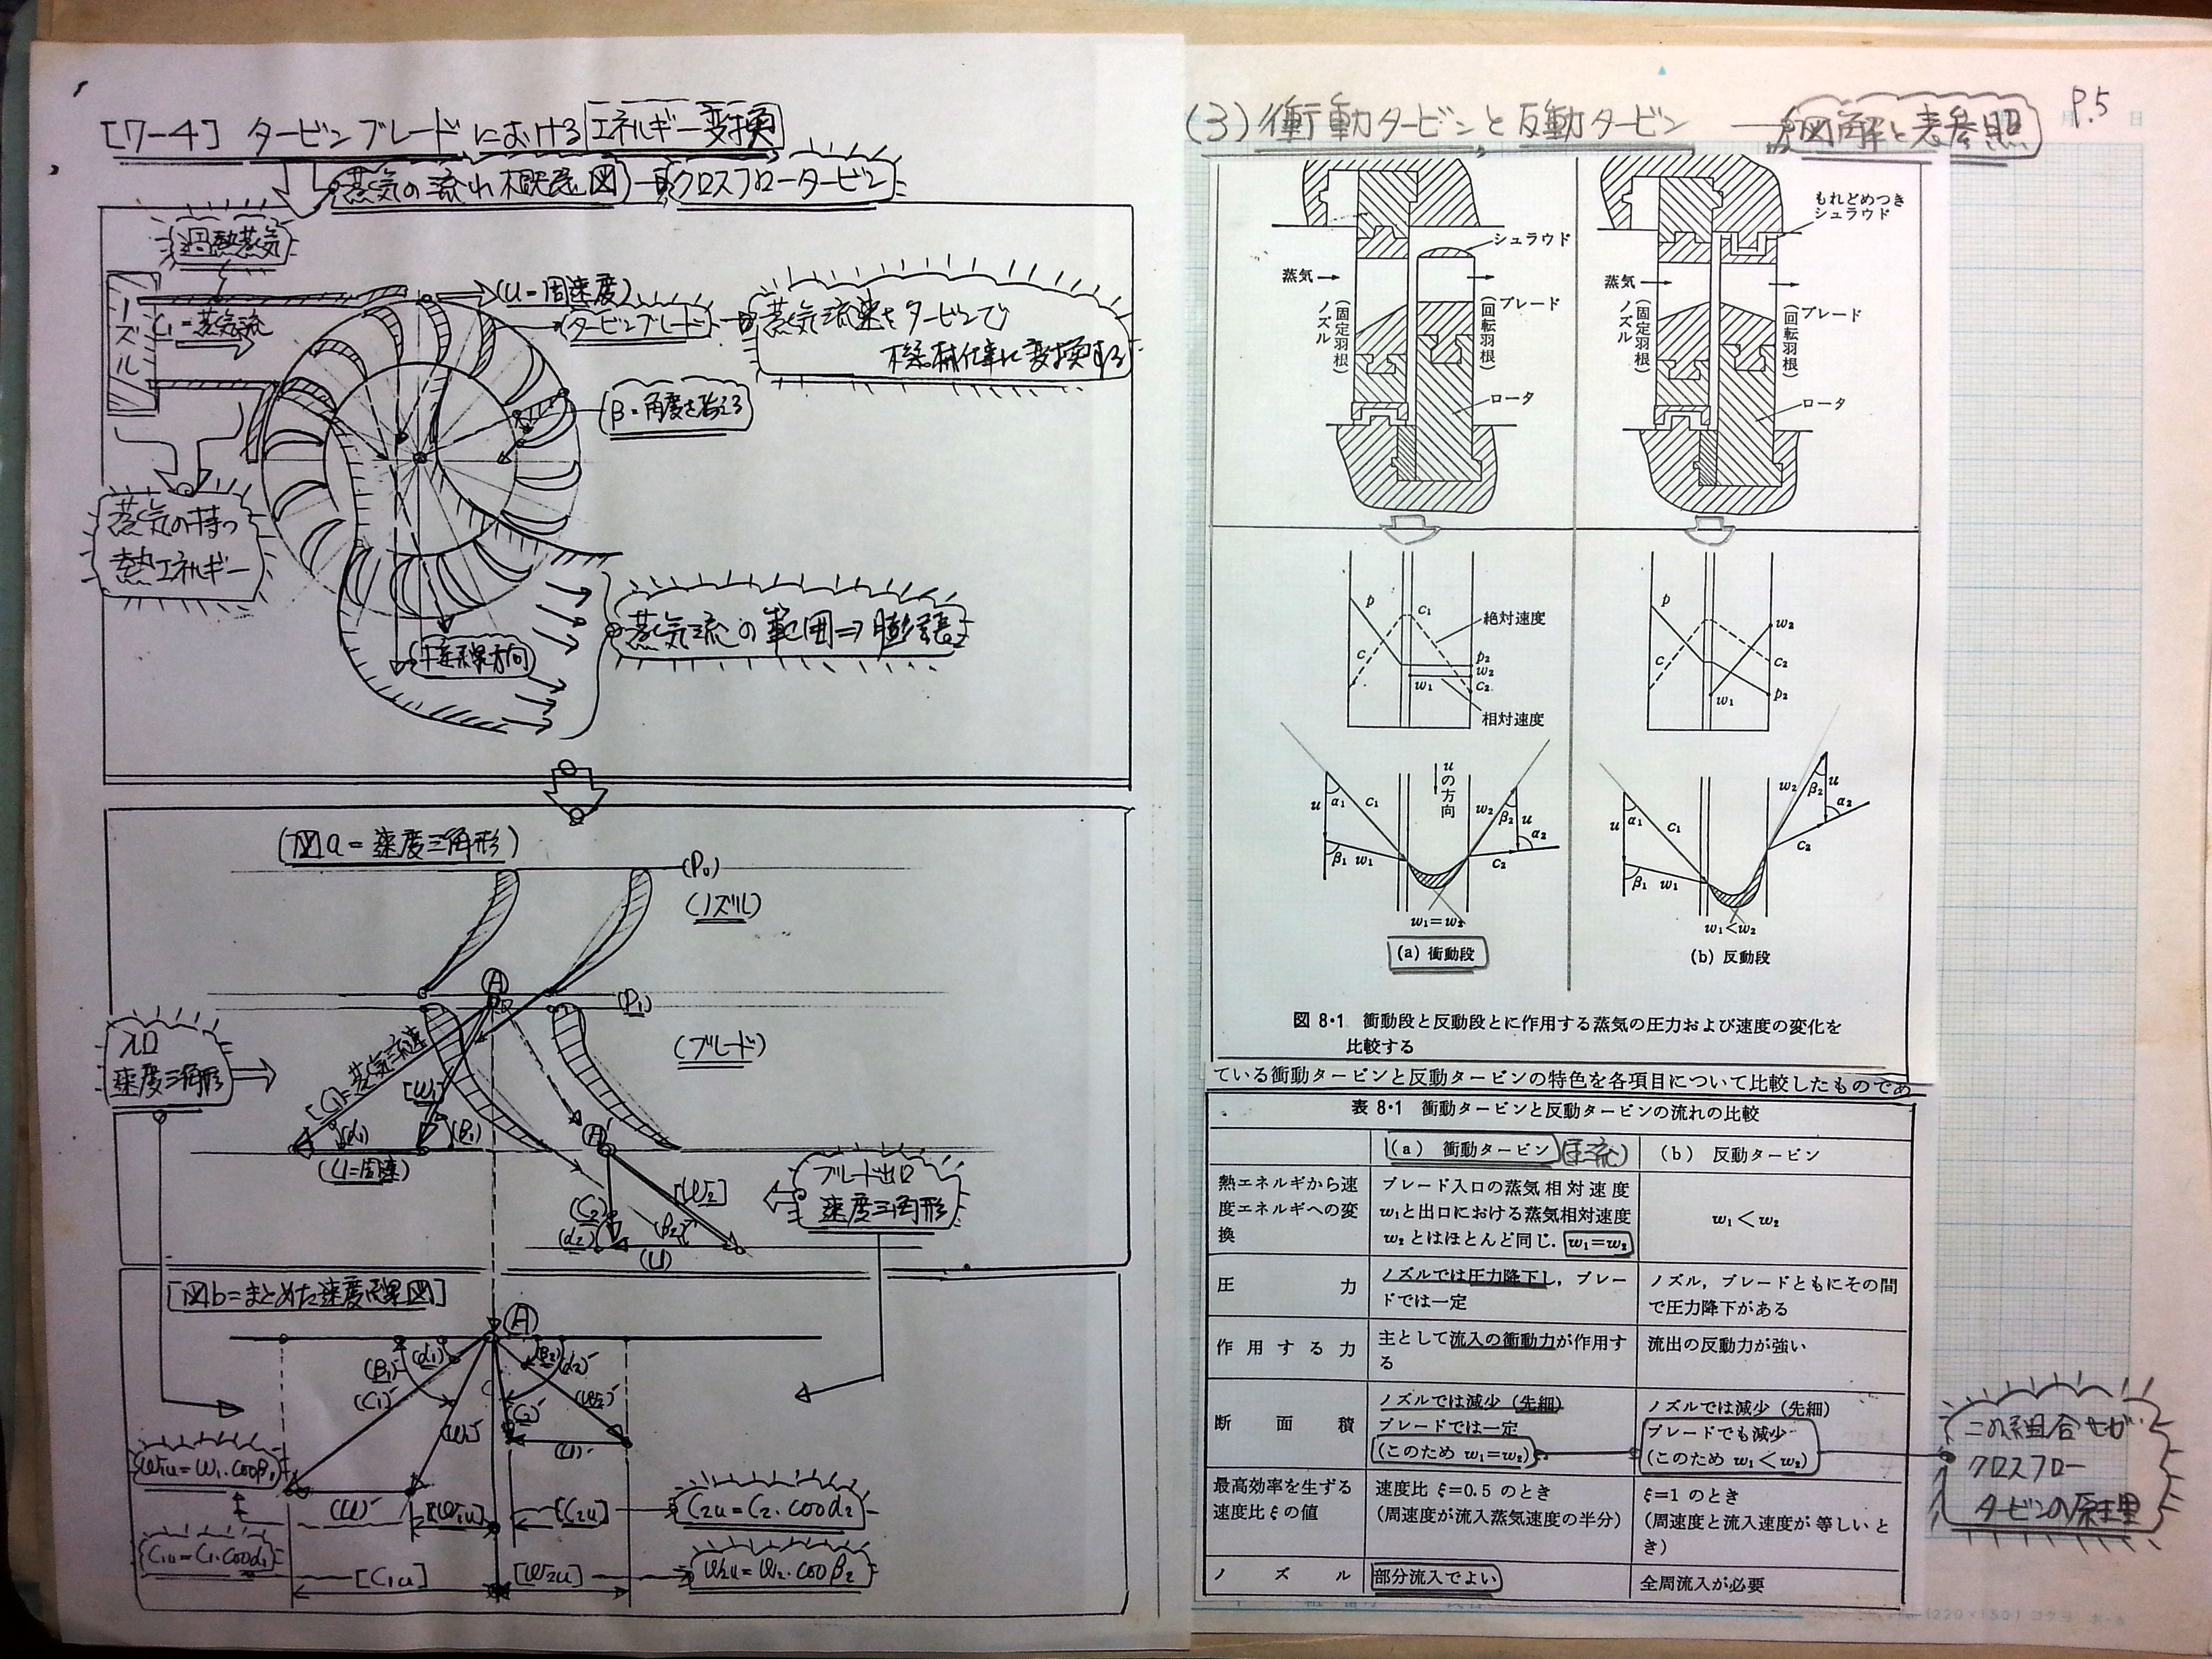 [7-4] タービンブレードにおけるエネルギー変換
蒸気の流れ概念図) クロスフロータービン
過熱蒸気
ノズル
C₁=蒸気流
(U=周速度)
(タービンブレード)
蒸気流束をタービンで
機械仕事に変換する
β=角度を揃える
蒸気の持つ
熱エネルギー
(接線方向)
蒸気流の範囲⇒膨張
(図a=速度三角形)
(P₀)
(ノズル)
Ⓐ
(P₁)
(ブレード)
入口
速度三角形
[C₁=蒸気流速]
[W₁]
(α₁)
(β₁)
(U=周速)
Ⓐ
(C₂)
(α₂)
[W₂]
(β₂)
(U)
ブレード出口
速度三角形
[図b=まとめた速度線図]
Ⓐ
(β₁)
(α₁)
(β₂)
(α₂)
(C₁)
(W₁)
(C₂)
(W₂)
(U)
(U)
W₁u=W₁・cosβ₁
C₁u=C₁・cosα₁
[W₁u]
[C₂u]
C₂u=C₂・cosα₂
[C₁u]
[W₂u]
W₂u=W₂・cosβ₂
P.5
(3) 衝動タービンと反動タービン
図解と表参照
シュラウド
蒸気→
ノズル
(固定羽根)
ブレード
(回転羽根)
ロータ
もれどめつき
シュラウド
蒸気→
ノズル
(固定羽根)
ブレード
(回転羽根)
ロータ
p
c₁
絶対速度
c
p₂
w₂
w₁
c₂
相対速度
p
w₂
c
c₂
w₁
p₂
uの方向
u
α₁
c₁
w₂
β₂
u
α₂
β₁
w₁
c₂
w₁=w₂
(a) 衝動段
u
α₁
c₁
w₂
β₂
u
α₂
β₁
w₁
c₂
w₁<w₂
(b) 反動段
図 8・1 衝動段と反動段とに作用する蒸気の圧力および速度の変化を
比較する
ている衝動タービンと反動タービンの特色を各項目について比較したものであ
表 8・1 衝動タービンと反動タービンの流れの比較
(a) 衝動タービン
(b) 反動タービン
熱エネルギから速
度エネルギへの変
換
ブレード入口の蒸気相対速度
w₁と出口における蒸気相対速度
w₂とはほとんど同じ. w₁=w₂
w₁<w₂
圧力
ノズルでは圧力降下し,ブレー
ドでは一定
ノズル,ブレードともにその間
で圧力降下がある
作用する力
主として流入の衝動力が作用す
る
流出の反動力が強い
断面積
ノズルでは減少 (先細)
ブレードでは一定
(このため w₁=w₂)
ノズルでは減少 (先細)
ブレードでも減少
(このため w₁<w₂)
最高効率を生ずる
速度比 ξ の値
速度比 ξ=0.5 のとき
(周速度が流入蒸気速度の半分)
ξ=1 のとき
(周速度と流入速度が等しいと
き)
ノズル
部分流入でよい
全周流入が必要
この組合せが
クロスフロー
タービンの原理